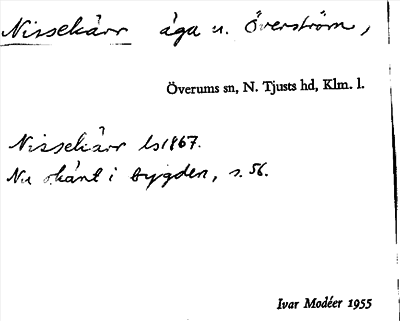 Nissekärr äga u. Överström,
Överums sn, N. Tjusts hd, Klm. l.
Nissekärr ls 1867.
Nu okänt i bygden, s. 56.
Ivar Modéer 1955